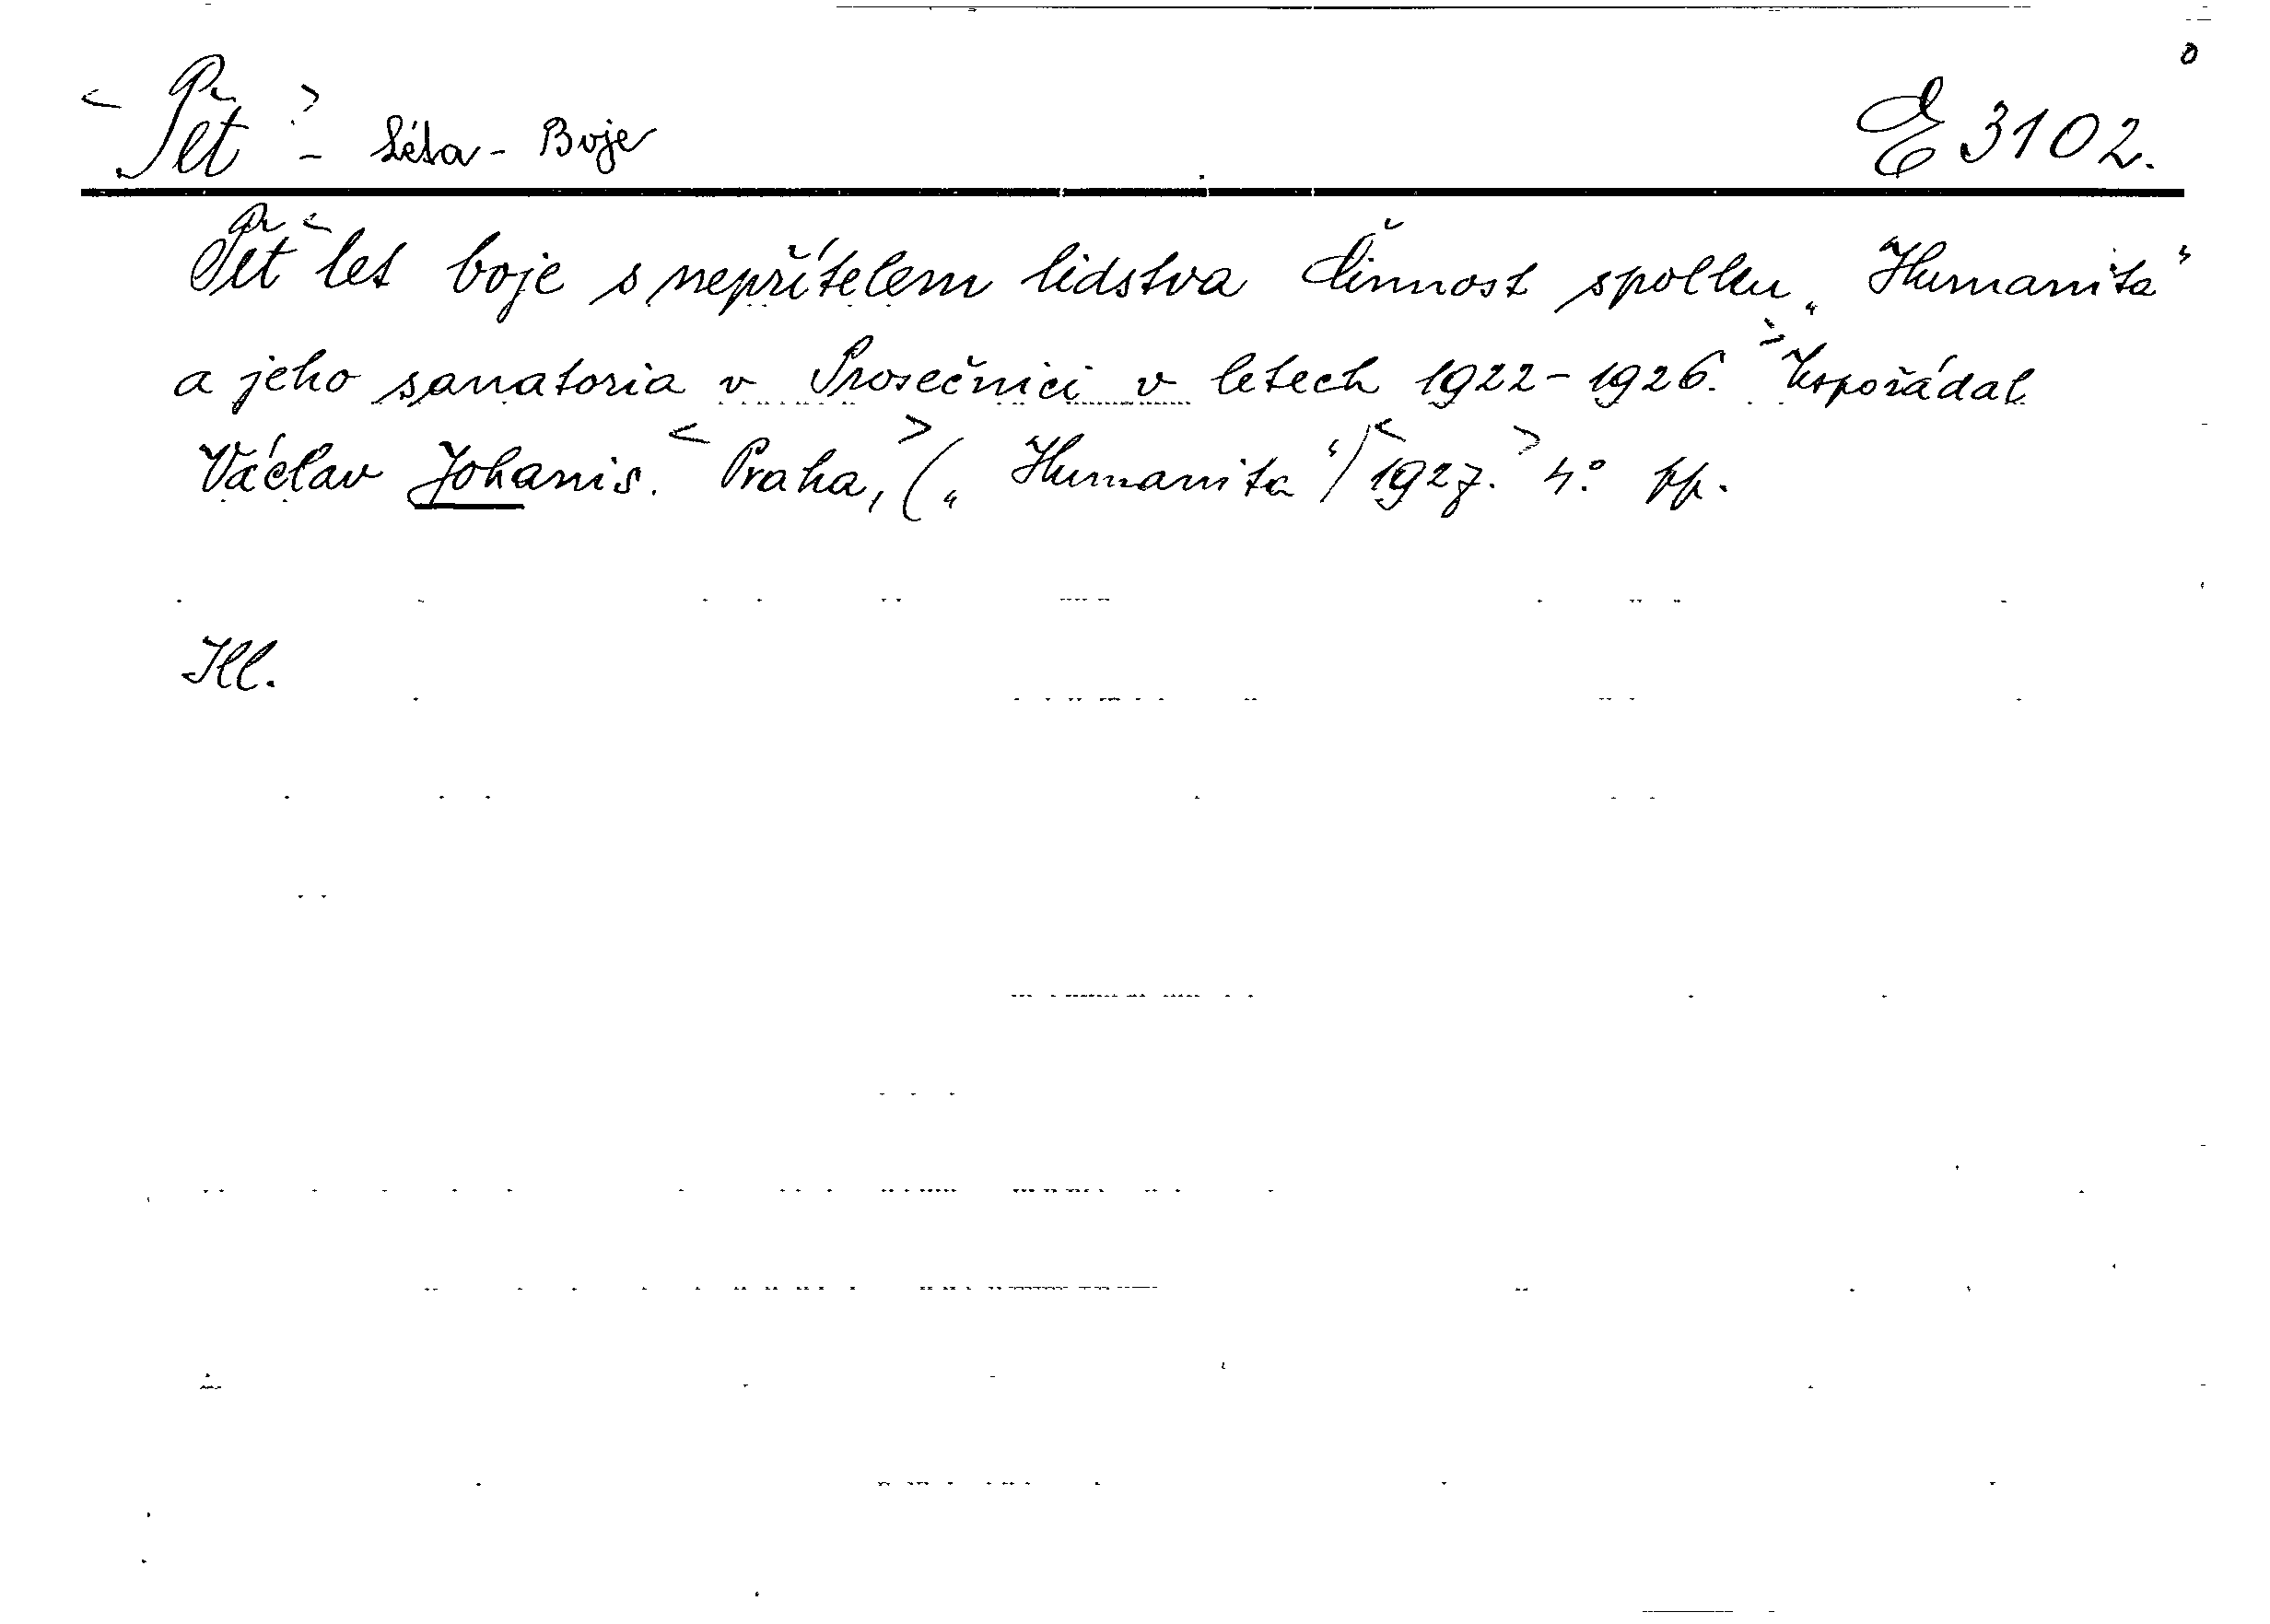 < Pět > - Léta - Boje E 3102.
Pět < let boje s nepřítelem lidstva Činnost spolku „Humanita“
a jeho sanatoria v Prosečnici v letech 1922-1926. > Uspořádal
Václav Johanis. < Praha, > („Humanita“) < 1927. > 4.° pp.
Ill.